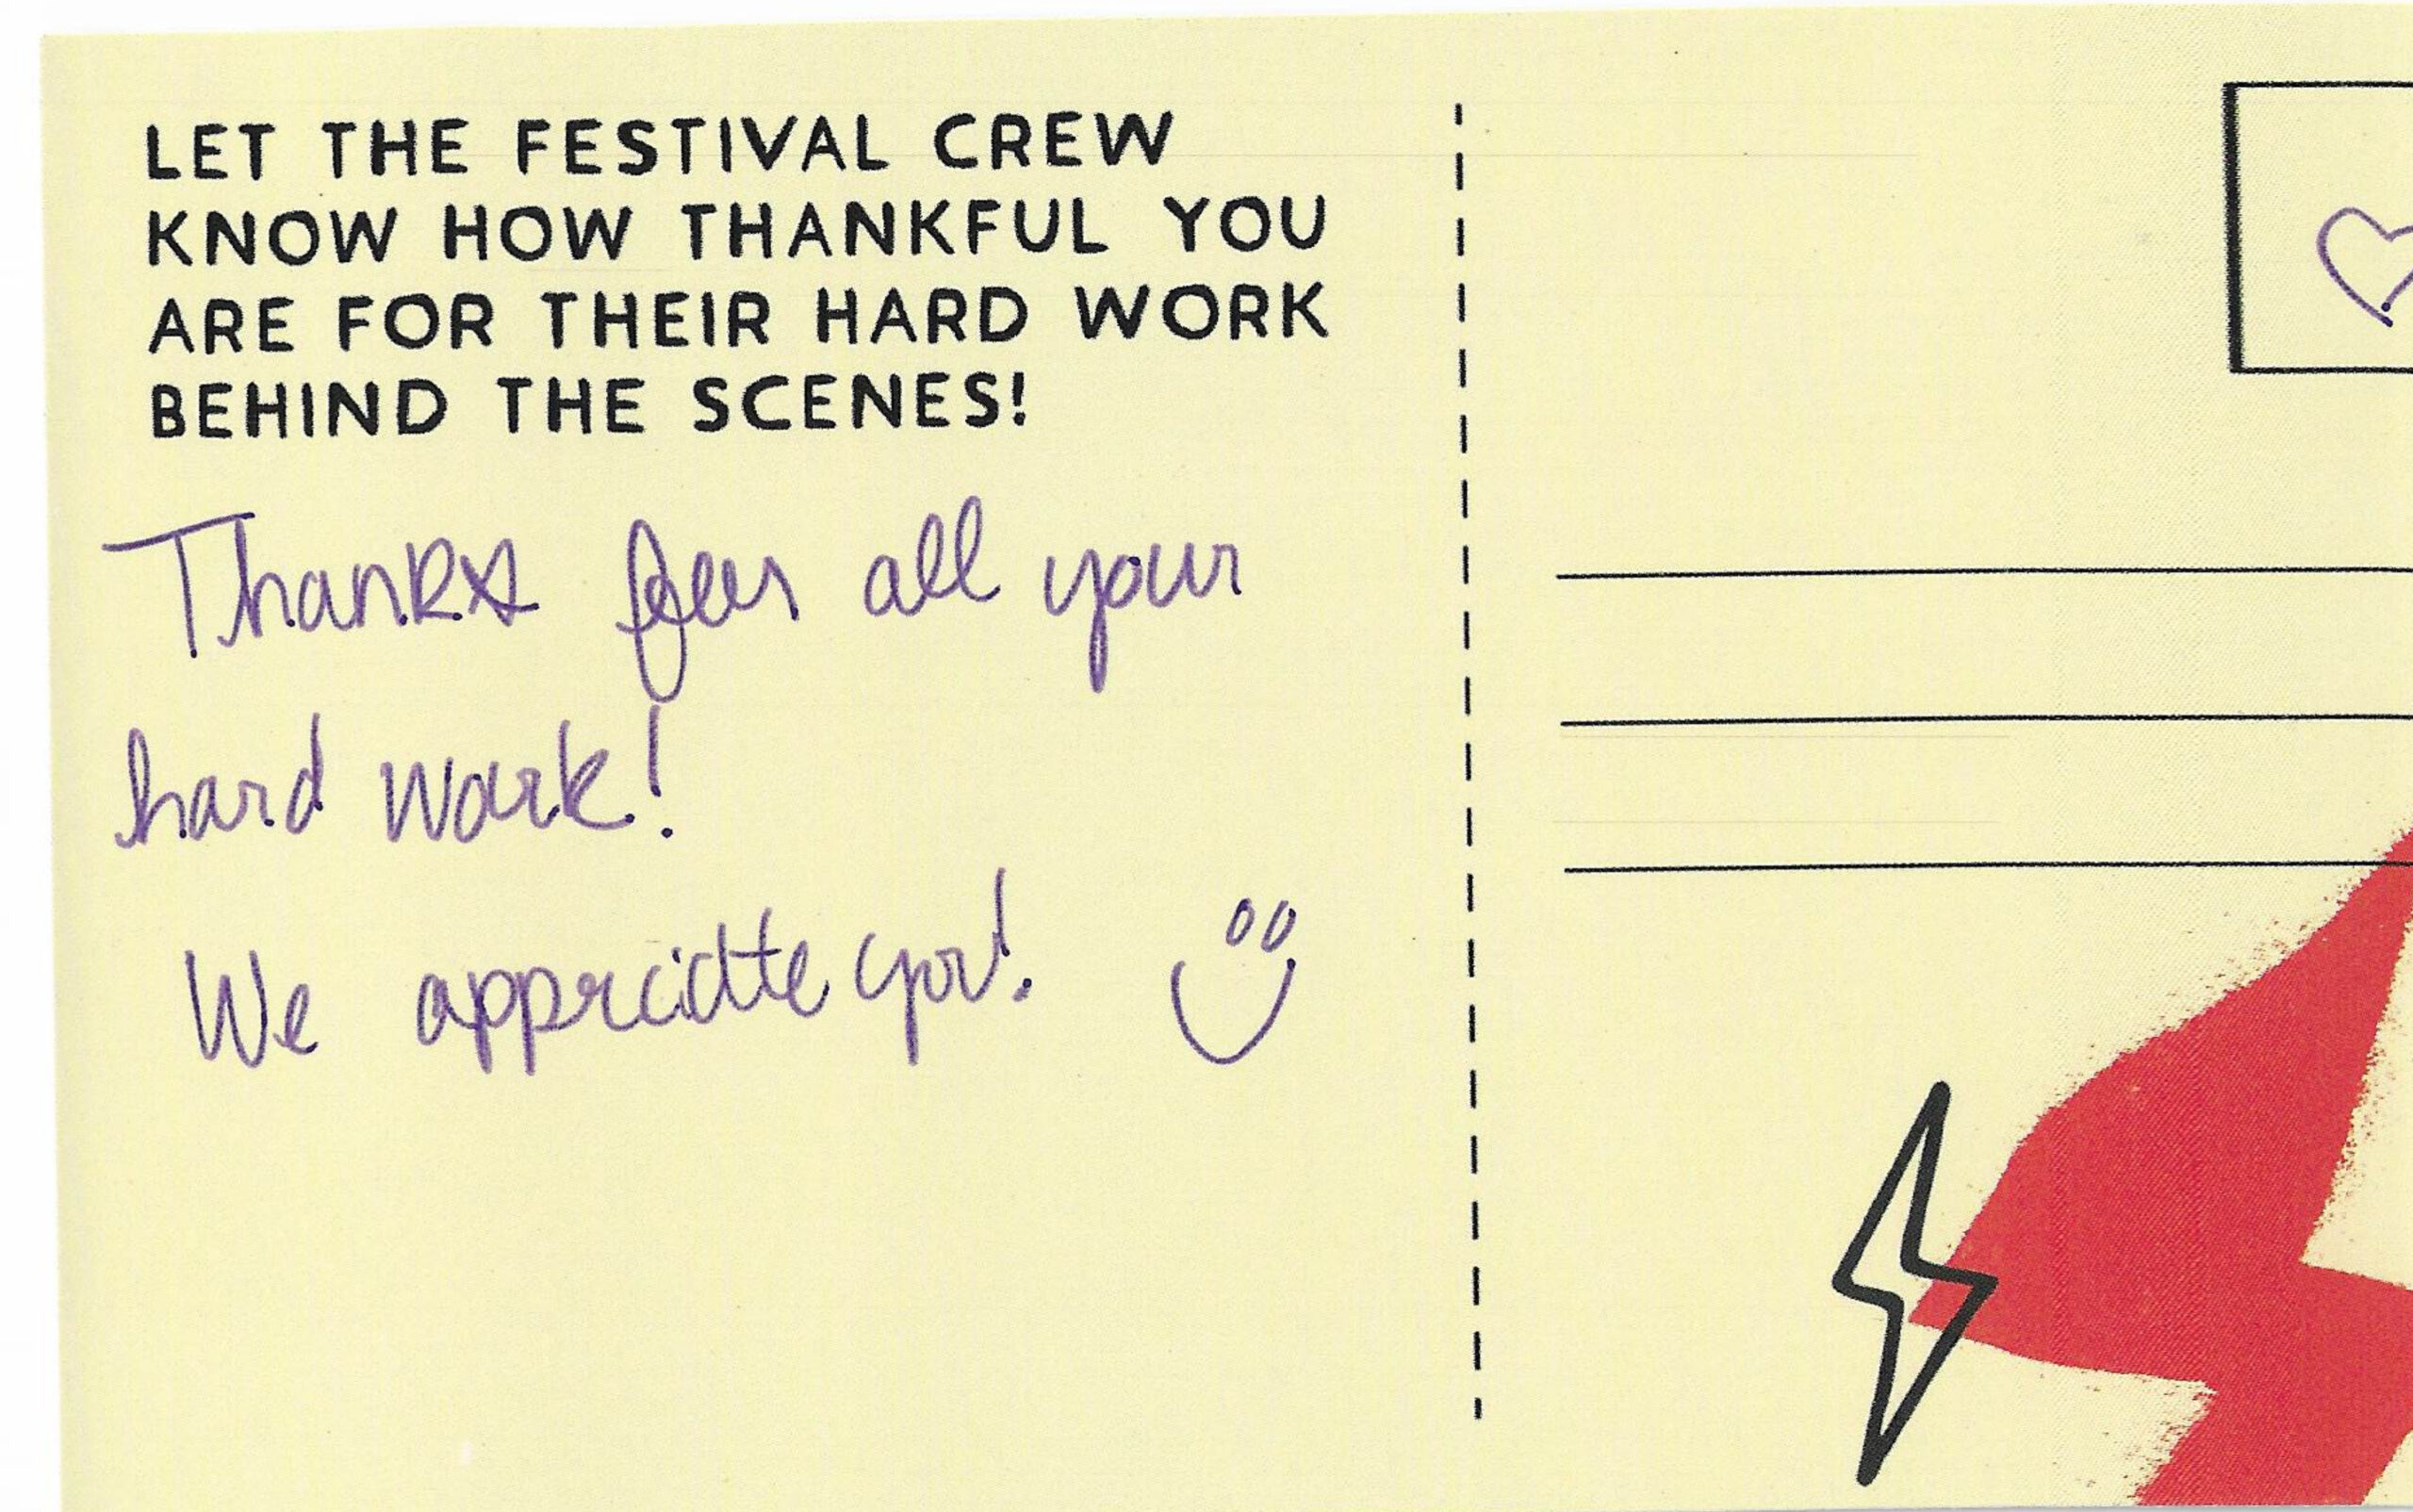 LET THE FESTIVAL CREW
KNOW HOW THANKFUL YOU
ARE FOR THEIR HARD WORK
BEHIND THE SCENES!
Thanks for all your
hard work!
We appriciatte you!